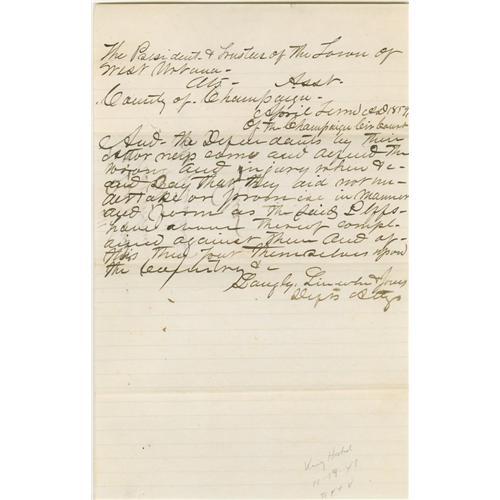 The President & Trustees of The Town of
West Urbana
vs Asst
County of Champaign
April Term AD 1859
Of the Champaign Cir Court
And the Defendants by their
attorneys come and defend the
wrong and injury when &c
and Say that they did not un
dertake or promise in manner
and form as the said Pltffs
have above thereof compl
ained against them and of
this they put themselves upon
the country &c
Langly, Lincoln & Jones
Defts Attys
11-19-41